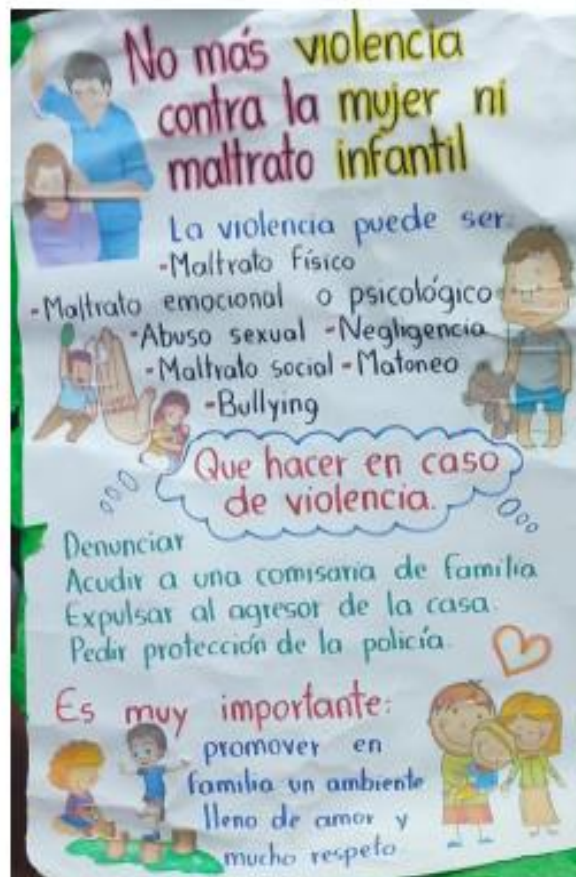 No más violencia
contra la mujer ni
maltrato infantil
La violencia puede ser:
-Maltrato Físico
-Maltrato emocional o psicológico
-Abuso sexual -Negligencia
-Maltrato social -Matoneo
-Bullying
Que hacer en caso
de violencia.
Denunciar
Acudir a una comisaria de familia
Expulsar al agresor de la casa.
Pedir protección de la policía.
Es muy importante:
promover en
familia un ambiente
lleno de amor y
mucho respeto